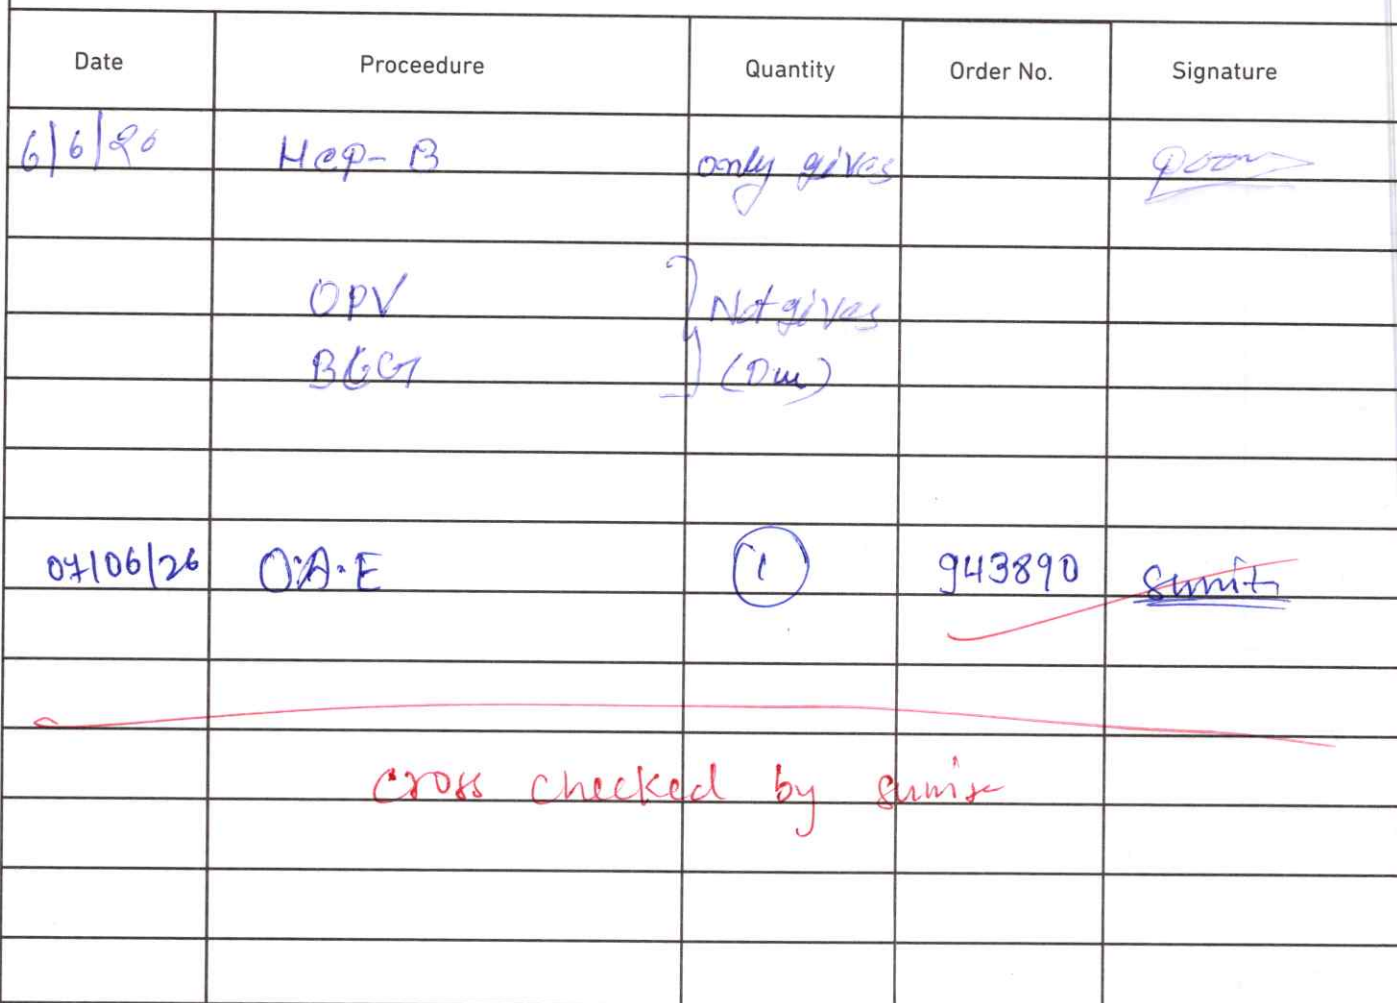 Date Proceedure Quantity Order No. Signature
6/6/26 Hep-B only gives
OPV Not gives
BCG (Due)
07/06/26 O.A.E 1 943890 Sumit
cross checked by